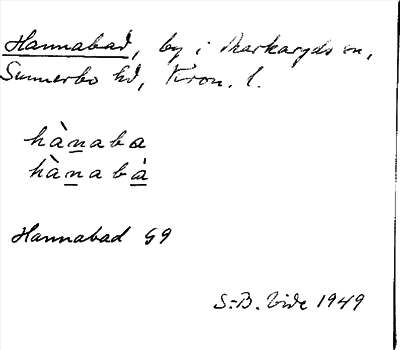 Hannabad, by i Markaryds sn,
Sunnerbo hd, Kron. l.
hànaba
hànabà
Hannabad G9
S.-B. Vide 1949